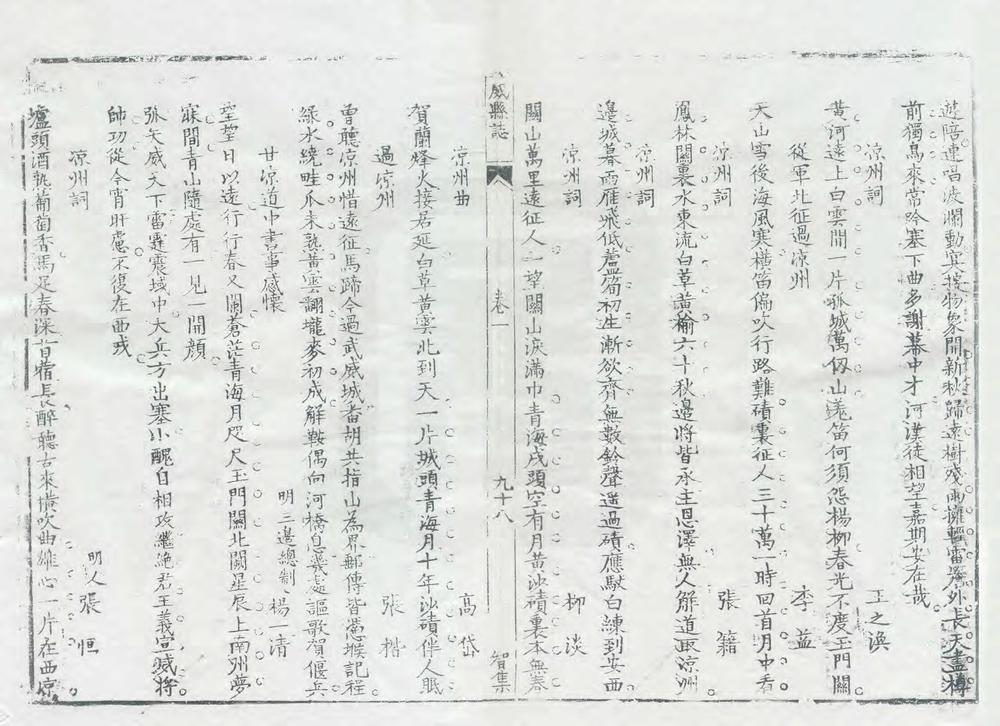 遊陪連唱波瀾動冥搜物象開新秋歸遠樹殘雨擁輕雷簷外長天盡樽
前獨鳥來常吟塞下曲多謝幕中才河漢徒相望嘉期安在哉
涼州詞
王之渙
黃河遠上白雲間一片孤城萬仞山羌笛何須怨楊柳春光不度玉門關
從軍北征過凉州
李益
天山雪後海風寒橫笛偏吹行路難磧裏征人三十萬一時回首月中看
涼州詞
張籍
鳳林關裏水東流白草黃榆六十秋邊將皆承主恩澤無人解道取涼州
涼州詞
邊城暮雨雁飛低蘆筍初生漸欲齊無數鈴聲遥過磧應馱白練到安西
涼州詞
柳淡
關山萬里遠征人一望關山淚滿巾青海戍頭空有月黃沙磧裏本無春
威縣誌
卷一
九十八
智集
涼州曲
高岱
賀蘭烽火接居延白草黃雲北到天一片城頭青海月十年沙磧伴人眠
過凉州
張楷
曾聽凉州惜遠征馬蹄今過武威城番胡共指山為界郵傳皆憑堠記程
綠水繞畦瓜未熟黃雲翻壠麥初成解鞍偶向河橋息處處謳歌賀偃兵
甘涼道中書事感懷
明三邊總制楊一清
望望日以遠行行春又闌蒼茫青海月咫尺玉門關北闕星辰上南州夢
寐間青山隨處有一見一開顏
張矢威天下雷霆震域中大兵方出塞小醜自相攻繼絶君王義宣威將
帥功從今宵旰慮不復在西戎
涼州詞
明人張恒
壚頭酒熟葡萄香馬足春深苜蓿長醉聽古來橫吹曲雄心一片在西涼